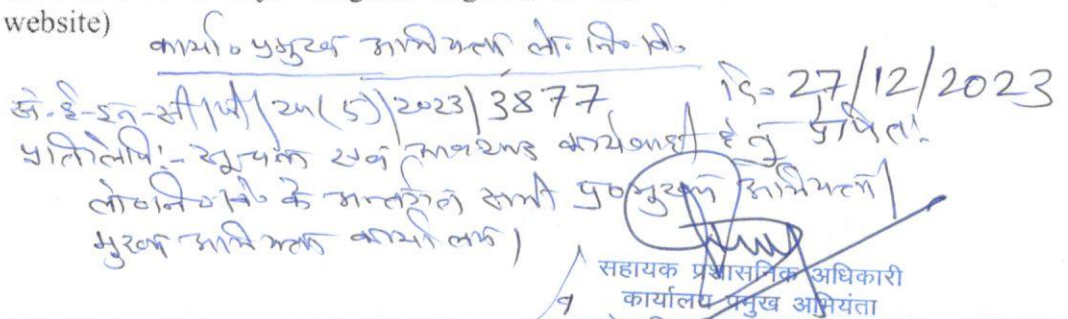 website)
कार्या० प्रमुख अभियन्ता लो० नि० वि०
2023/3877 दि० 27/12/2023
प्रतिलिपि:- सूचनार्थ एवं आवश्यक कार्यवाही हेतु प्रेषित:-
लो०नि०वि० के अन्तर्गत सभी प्र० मुख्य अभियन्ता/
मुख्य अभियन्ता कार्यालय।
सहायक प्रशासनिक अधिकारी
कार्यालय प्रमुख अभियंता